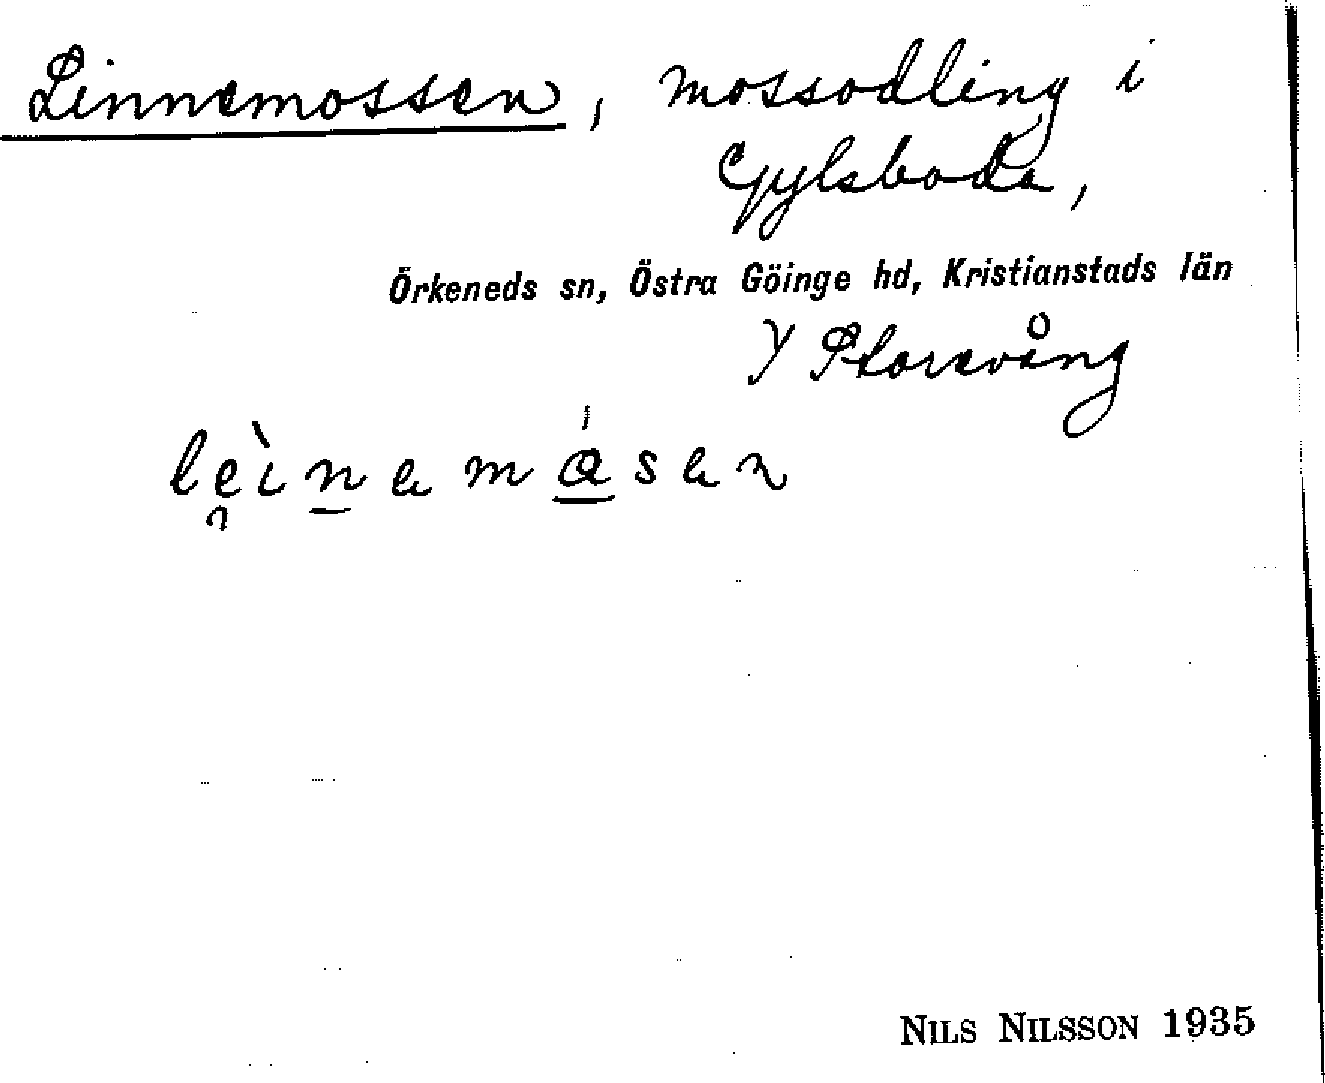 Linnemossen, mossodling i
Gylsboda,
Örkeneds sn, Östra Göinge hd, Kristianstads län
Y Storevång
leinemåsen
NILS NILSSON 1935